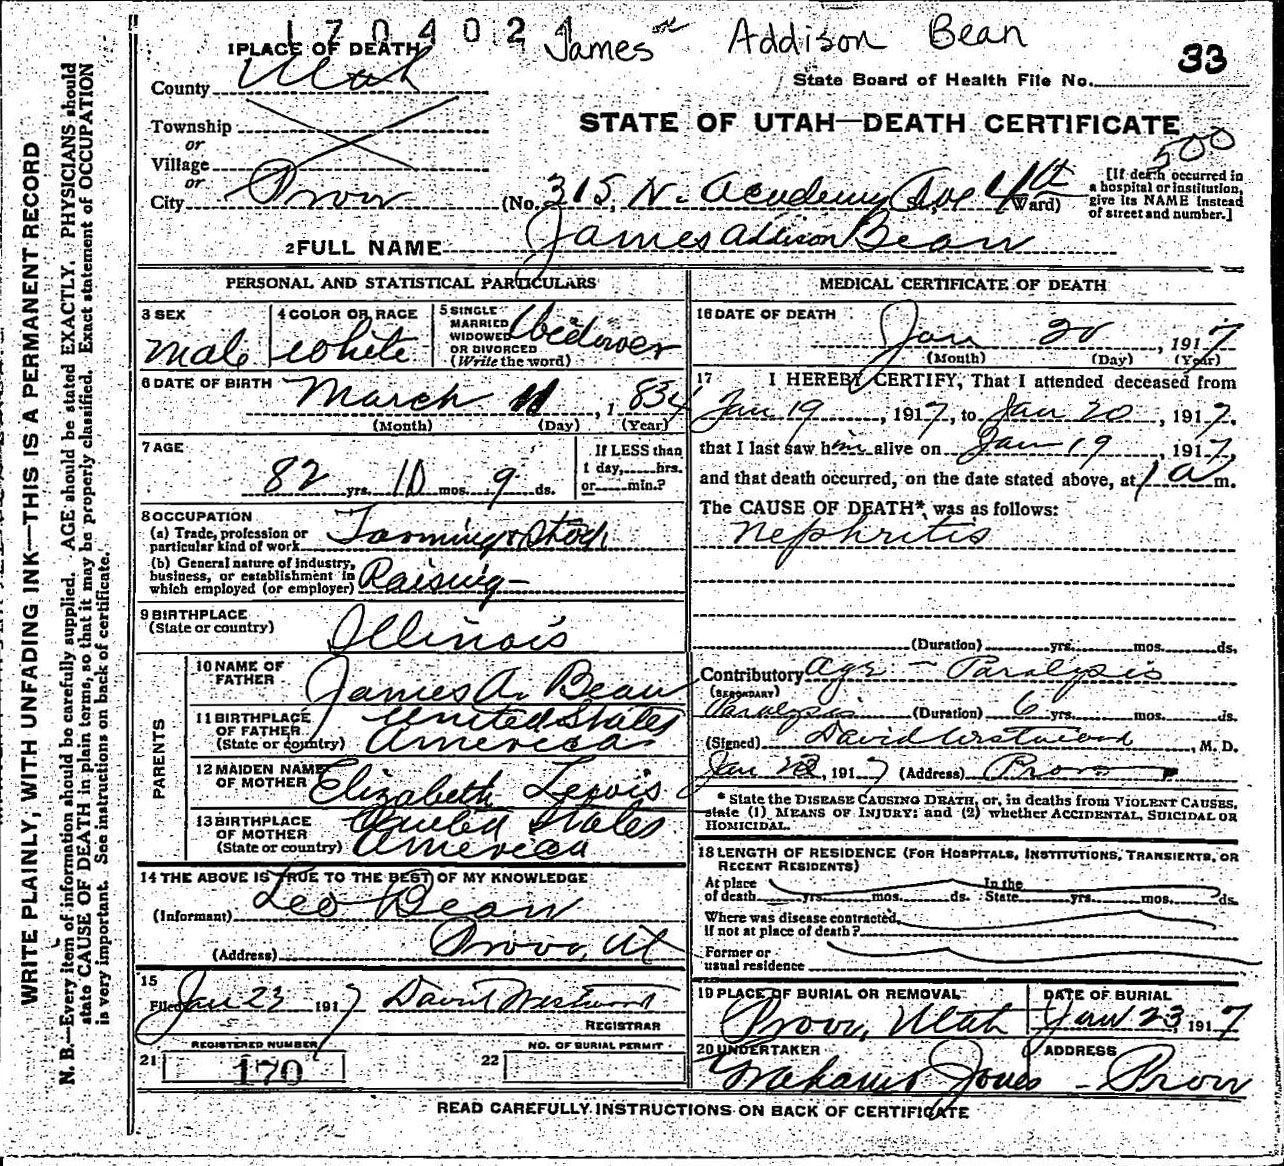 1704024
James or Addison Bean
33
State Board of Health File No.
1 PLACE OF DEATH
County Utah
Township
or
Village
or
City Provo
STATE OF UTAH—DEATH CERTIFICATE
500
(No. 315 N. Academy Ave St., 4th Ward)
[If death occurred in
a hospital or institution,
give its NAME instead
of street and number.]
2 FULL NAME James Addison Bean
PERSONAL AND STATISTICAL PARTICULARS
3 SEX
male
4 COLOR OR RACE
white
5 SINGLE
MARRIED
WIDOWED
OR DIVORCED
(Write the word)
Widower
6 DATE OF BIRTH
March 11, 1834
(Month) (Day) (Year)
7 AGE
82 yrs. 10 mos. 9 ds.
If LESS than
1 day, hrs.
or min.?
8 OCCUPATION
(a) Trade, profession or
particular kind of work Farming & Stock
(b) General nature of industry,
business, or establishment in
which employed (or employer) Raising
9 BIRTHPLACE
(State or country) Illinois
PARENTS
10 NAME OF
FATHER James A. Bean
11 BIRTHPLACE
OF FATHER
(State or country) United States
America
12 MAIDEN NAME
OF MOTHER Elizabeth Lewis
13 BIRTHPLACE
OF MOTHER
(State or country) United States
America
14 THE ABOVE IS TRUE TO THE BEST OF MY KNOWLEDGE
(Informant) Leo Bean
(Address) Provo, Ut
15
Filed Jan 23 1917 David Westwood
REGISTRAR
REGISTERED NUMBER
21 170
NO. OF BURIAL PERMIT
22
MEDICAL CERTIFICATE OF DEATH
16 DATE OF DEATH
Jan 20, 1917
(Month) (Day) (Year)
17 I HEREBY CERTIFY, That I attended deceased from
Jan 19, 1917, to Jan 20, 1917,
that I last saw him alive on Jan 19, 1917,
and that death occurred, on the date stated above, at 1 a m.
The CAUSE OF DEATH* was as follows:
Nephritis
(Duration) yrs. mos. ds.
Contributory Age - Paralysis
(SECONDARY)
Paralysis (Duration) 6 yrs. mos. ds.
(Signed) David Westwood, M. D.
Jan 1917 (Address) Provo
* State the DISEASE CAUSING DEATH, or, in deaths from VIOLENT CAUSES,
state (1) MEANS OF INJURY; and (2) whether ACCIDENTAL, SUICIDAL OR
HOMICIDAL.
18 LENGTH OF RESIDENCE (FOR HOSPITALS, INSTITUTIONS, TRANSIENTS, OR
RECENT RESIDENTS)
At place In the
of death yrs. mos. ds. State yrs. mos. ds.
Where was disease contracted,
if not at place of death?
Former or
usual residence
19 PLACE OF BURIAL OR REMOVAL
Provo, Utah
DATE OF BURIAL
Jan 23, 1917
20 UNDERTAKER
Jones
ADDRESS
Provo
READ CAREFULLY INSTRUCTIONS ON BACK OF CERTIFICATE
WRITE PLAINLY, WITH UNFADING INK—THIS IS A PERMANENT RECORD
N. B.—Every item of information should be carefully supplied. AGE should be stated EXACTLY. PHYSICIANS should
state CAUSE OF DEATH in plain terms, so that it may be properly classified. Exact statement of OCCUPATION
is very important. See instructions on back of certificate.